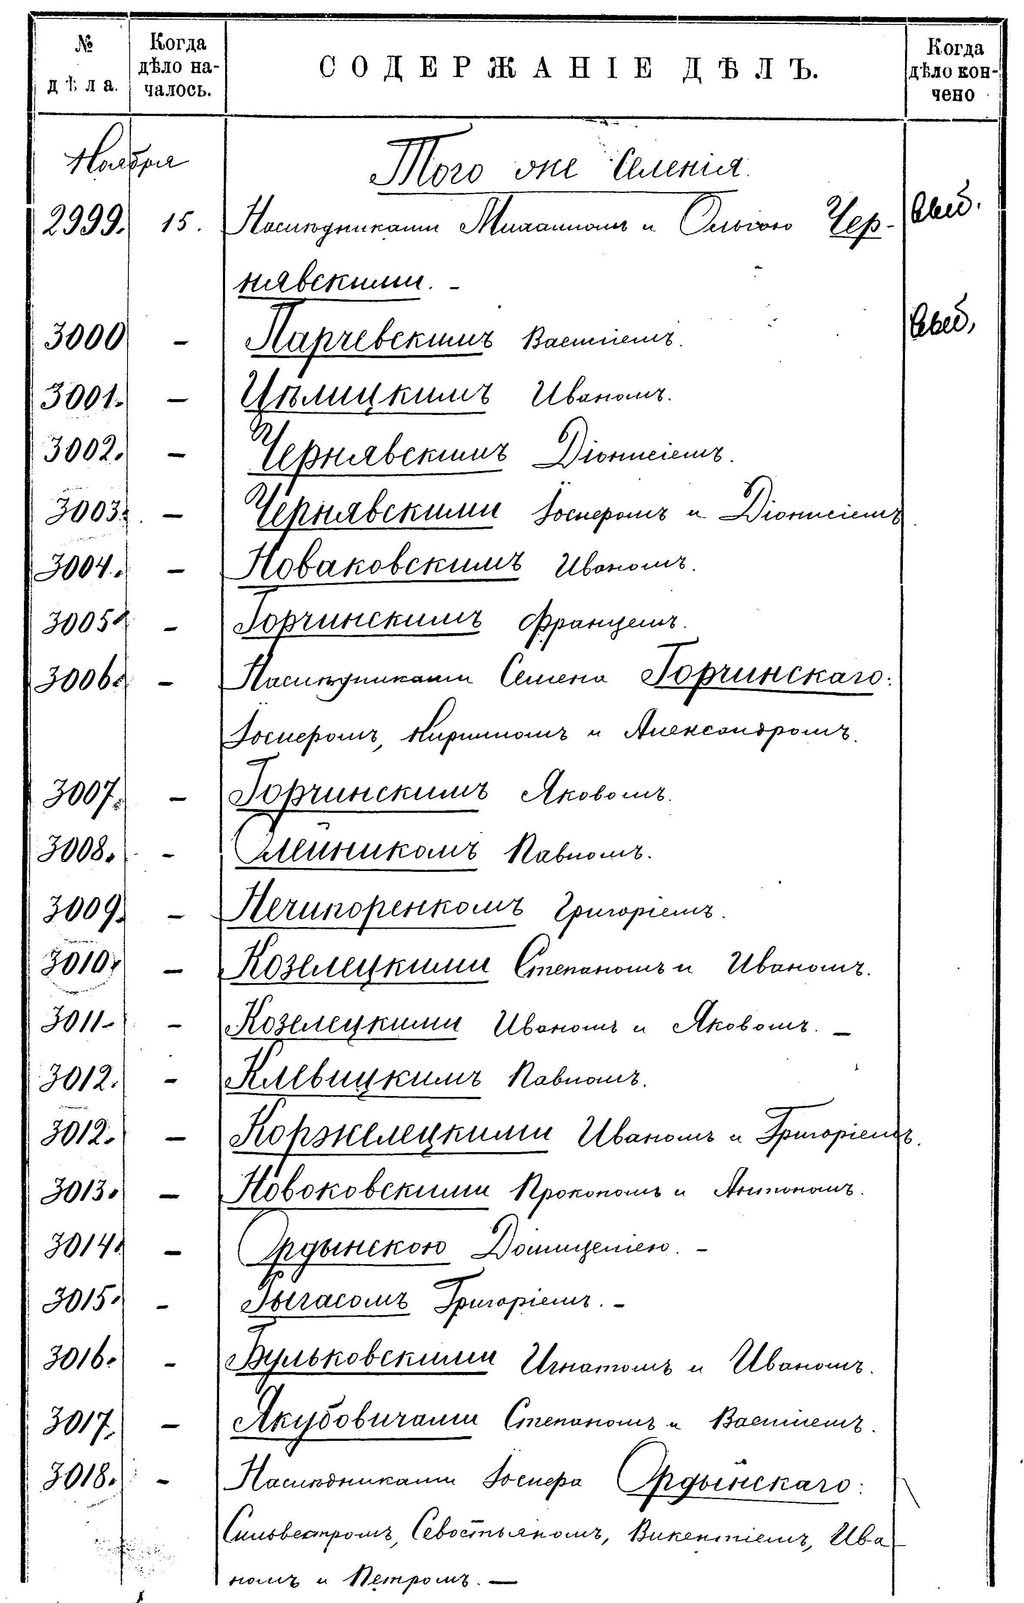 № дѣла.
Когда дѣло началось.
СОДЕРЖАНІЕ ДѢЛЪ.
Когда дѣло кончено
Ноября
Того же Селенія.
2999. 15. Наслѣдниками Михаиломъ и Ольгою Чер-
нявскими. –
3000 – Парчевскимъ Василіемъ.
3001. – Цѣлицкимъ Иваномъ.
3002. – Чернявскимъ Діонисіемъ.
3003. – Чернявскими Іосифомъ и Діонисіемъ
3004. – Новаковскимъ Иваномъ.
3005 – Горчинскимъ Францемъ.
3006. – Наслѣдниками Семена Горчинскаго:
Іосифомъ, Кириломъ и Александромъ.
3007. – Горчинскимъ Яковомъ.
3008. – Олейникомъ Павломъ.
3009. – Нечипоренкомъ Григоріемъ.
3010. – Козелецкими Степаномъ и Иваномъ.
3011 – Козелецкими Иваномъ и Яковомъ. –
3012. – Клевицкимъ Павломъ.
3012. – Коржелецкими Иваномъ и Григоріемъ.
3013. – Новоковскими Прокопомъ и Антономъ.
3014. – Ордынскою Домицеліею. –
3015. – Гыгасомъ Григоріемъ. –
3016. – Бульковскими Игнатомъ и Иваномъ.
3017. – Якубовичами Степаномъ и Василіемъ.
3018. – Наслѣдниками Іосифа Ордынскаго:
Сильвестромъ, Севостьяномъ, Викентіемъ, Ива-
номъ и Петромъ. –